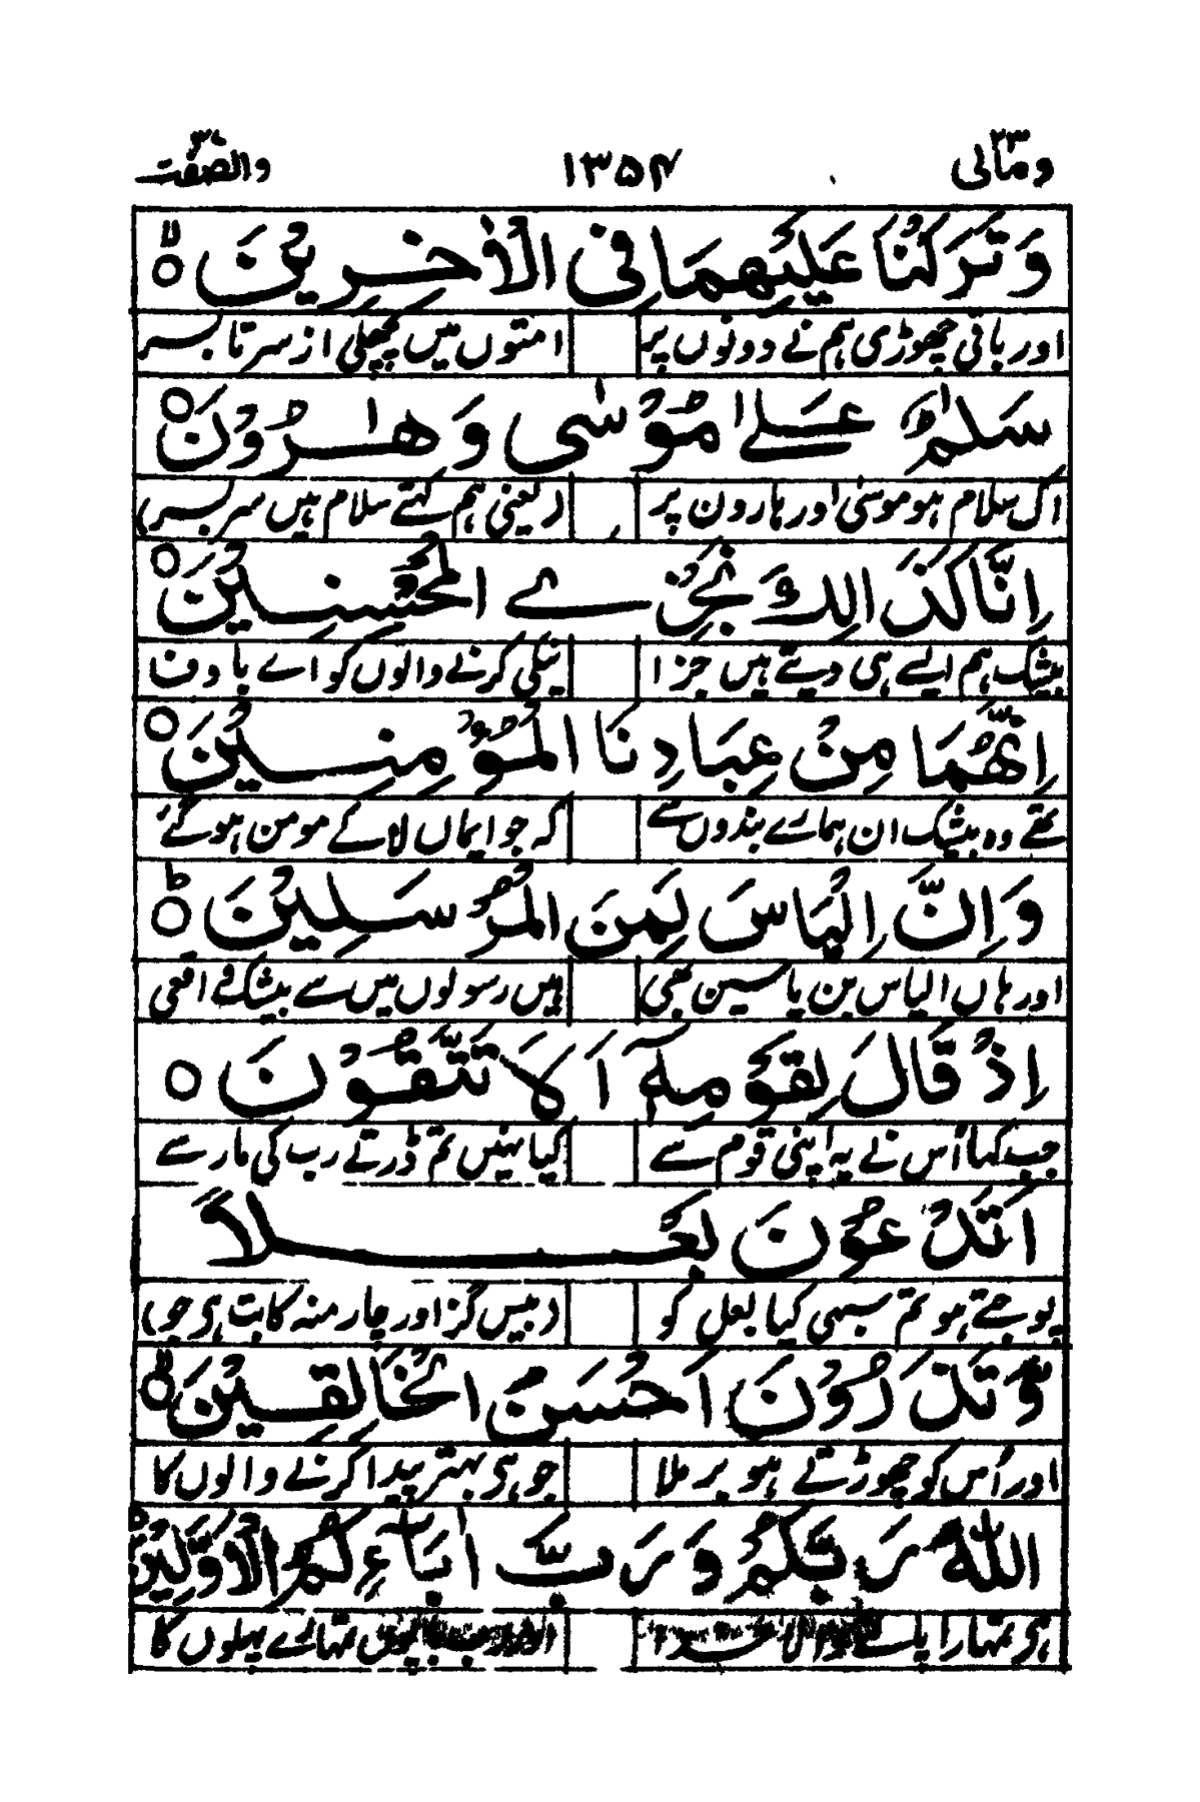 ومالی ۲۳ ۱۳۵۴ والصّٰفّٰت ۳۷
وَتَرَكْنَا عَلَيْهِمَا فِي الْاٰخِرِيْنَ ۙ
اور باقی چھوڑی ہم نے دونوں پر امتوں میں پچھلی از سر تا بسر
سَلٰمٌ عَلٰى مُوْسٰى وَهٰرُوْنَ
اک سلام ہو موسیٰ اور ہارون پر (یعنی ہم کہتے سلام ہیں سر بسر)
اِنَّا كَذَالِكَ نَجْزِے الْمُحْسِنِيْنَ
بیشک ہم ایسے ہی دیتے ہیں جزا نیکی کرنے والوں کو اے با وفا
اِنَّهُمَا مِنْ عِبَادِنَا الْمُؤْمِنِيْنَ
تھے وہ بیشک ان ہمارے بندوں سے کہ جو ایماں لا کے مومن ہو گئے
وَاِنَّ اِلْيَاسَ لَمِنَ الْمُرْسَلِيْنَ ۭ
اور ہاں الیاس بن یاسین بھی ہیں رسولوں میں سے بیشک واقعی
اِذْ قَالَ لِقَوْمِهٖٓ اَلَا تَتَّقُوْنَ
جب کہا اُس نے یہ اپنی قوم سے کیا نہیں تم ڈرتے رب کی مار سے
اَتَدْعُوْنَ بَعْلًا
پوجتے ہو تم سبھی کیا بعل کو (بیس گز اور چار منہ کا بت ہی جو)
وَّتَذَرُوْنَ اَحْسَنَ الْخَالِقِيْنَ ۙ
اور اُس کو چھوڑتے ہو بر ملا جو ہی بہتر پیدا کرنے والوں کا
اللّٰهَ رَبَّكُمْ وَرَبَّ اٰبَآءِكُمُ الْاَوَّلِيْنَ
ہی تمہارا تمہارے پہلوں کا